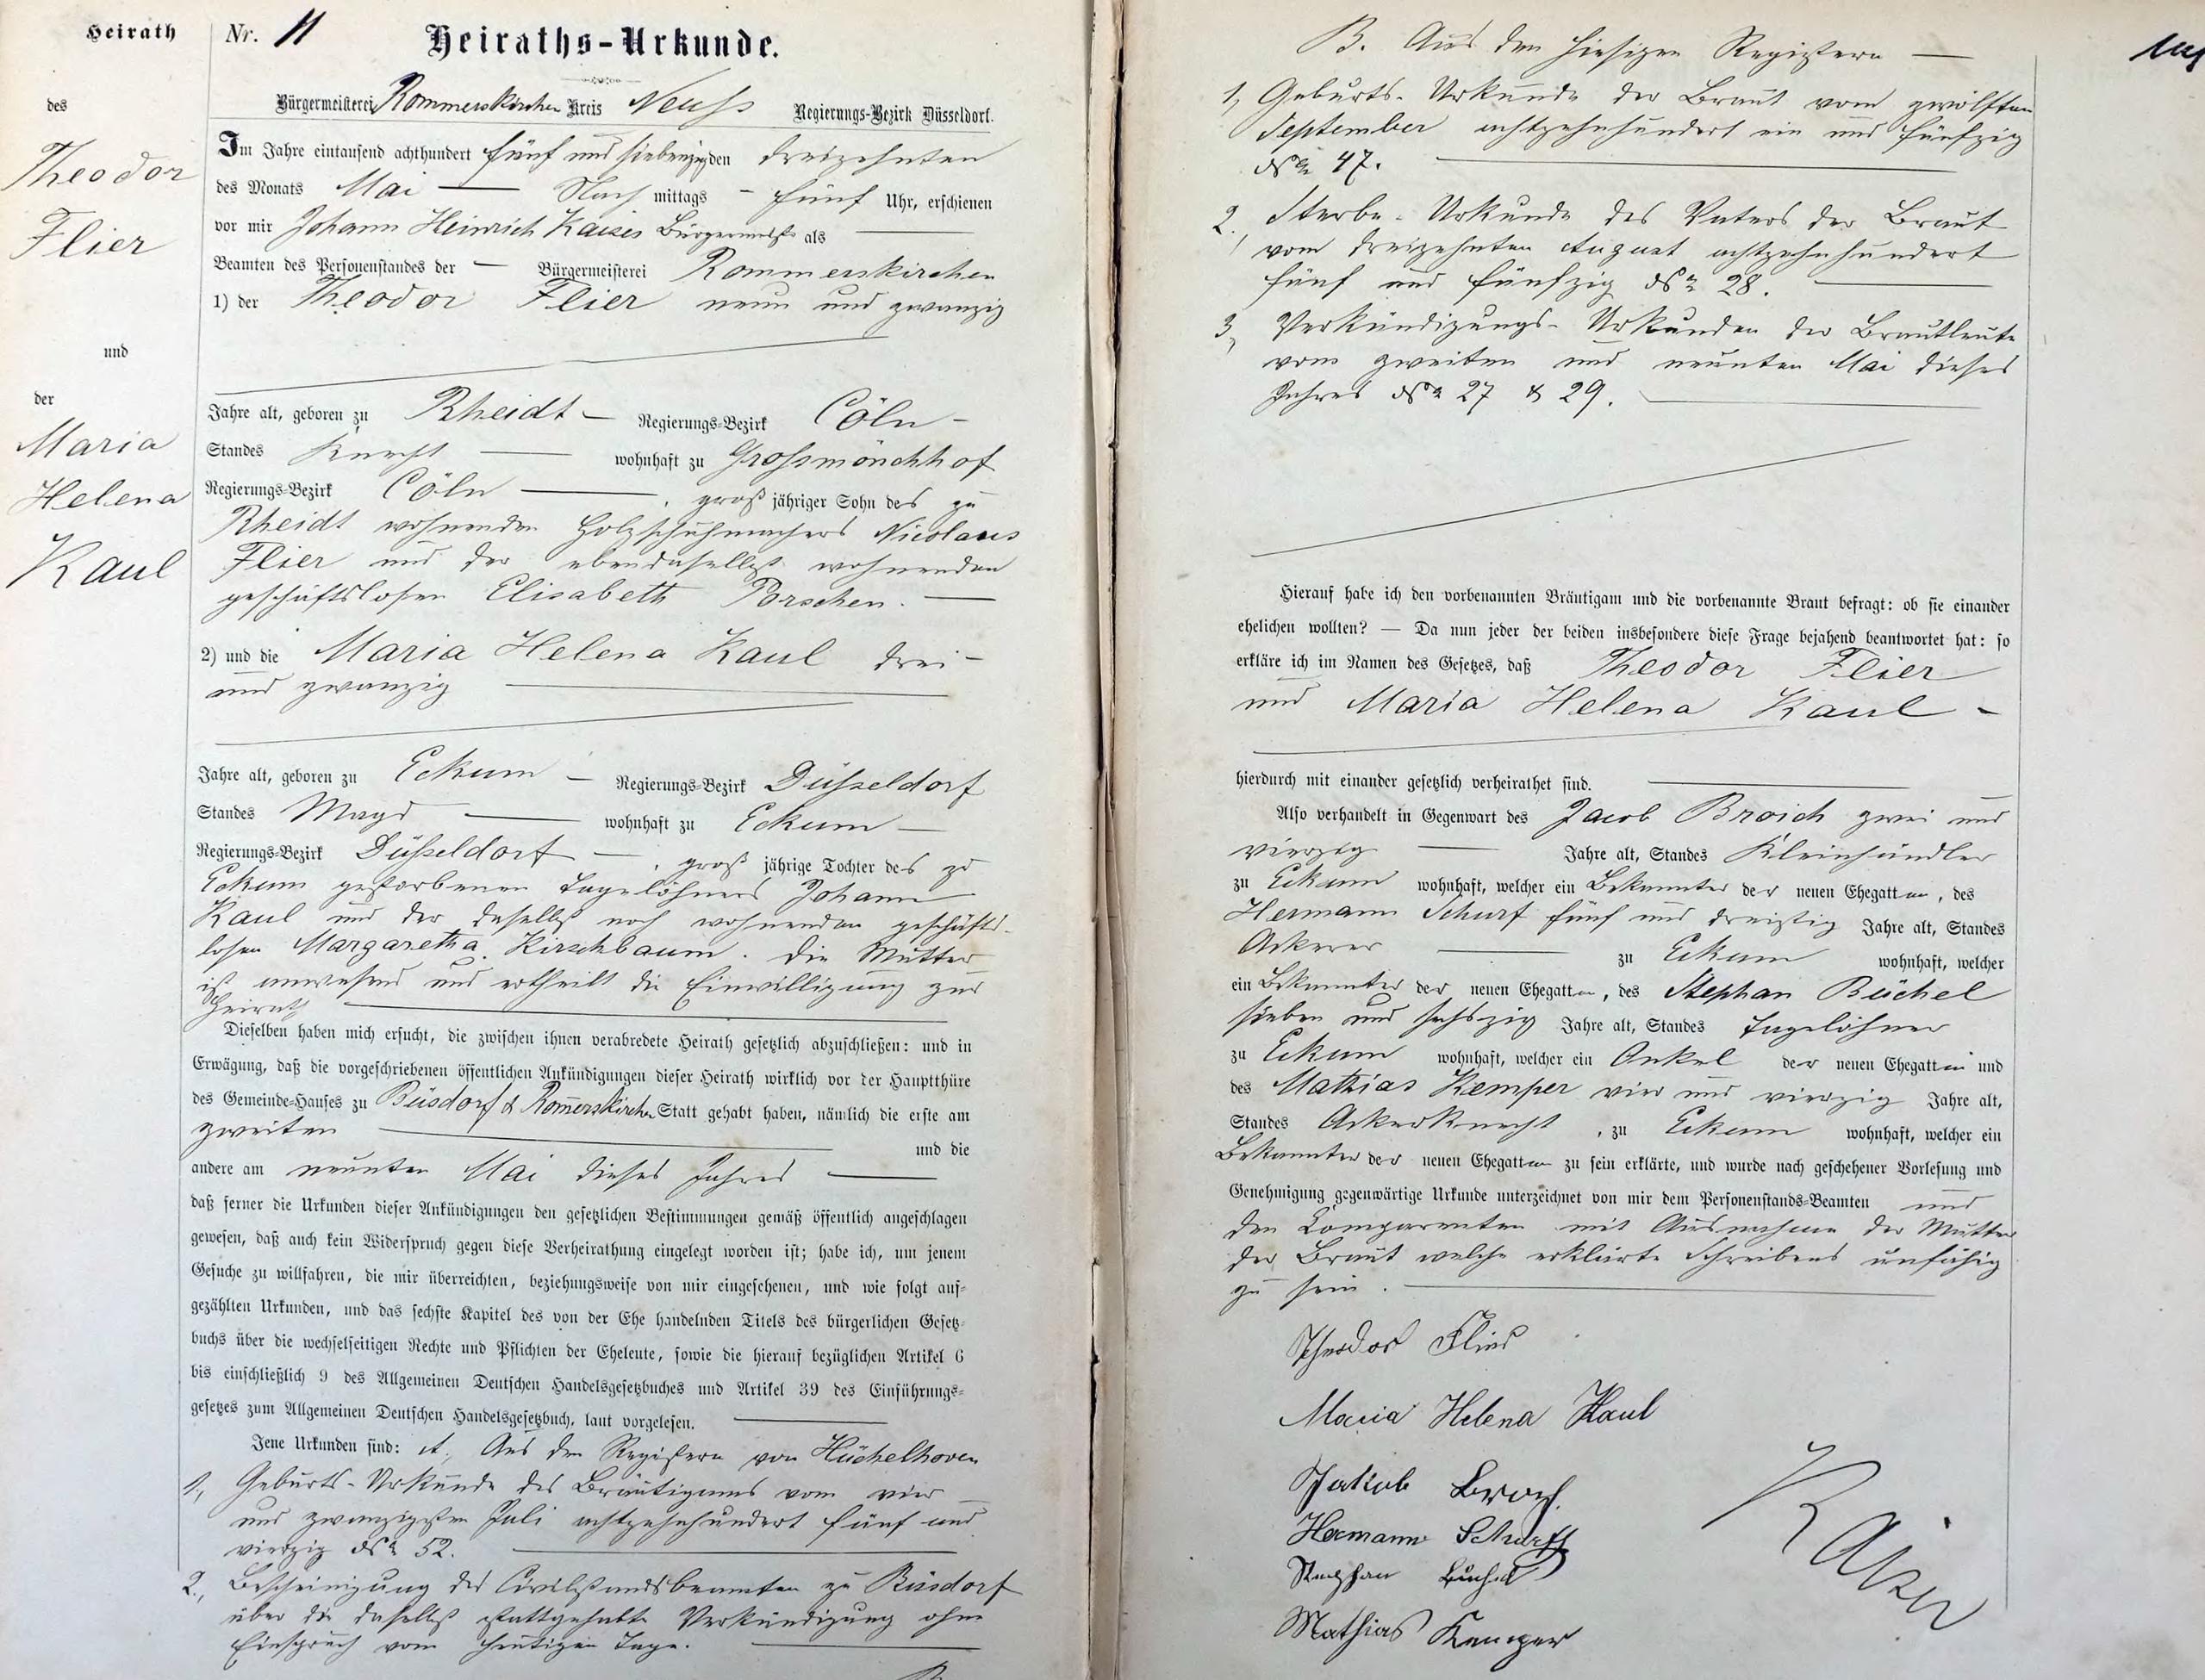 Heirath
des
Theodor
Flier
und
der
Maria
Helena
Kaul
Nr. 11 Heiraths-Urkunde.
Bürgermeisterei Rommerskirchen Kreis Neuss Regierungs-Bezirk Düsseldorf.
Im Jahre eintausend achthundert fünf und siebenzig den dreizehnten
des Monats Mai Nach mittags fünf Uhr, erschienen
vor mir Johann Heinrich Kaiser Bürgermeister als
Beamten des Personenstandes der — Bürgermeisterei Rommerskirchen
1) der Theodor Flier neun und zwanzig
Jahre alt, geboren zu Rheidt — Regierungs-Bezirk Cöln —
Standes Knecht — wohnhaft zu Grossmönchhof
Regierungs-Bezirk Cöln —, groß jähriger Sohn des zu
Rheidt wohnenden Holzschuhmachers Nicolaus
Flier und der ebendaselbst wohnenden
geschäftslosen Elisabeth Porschen. —
2) und die Maria Helena Kaul drei —
und zwanzig
Jahre alt, geboren zu Eckum — Regierungs-Bezirk Düsseldorf
Standes Magd — wohnhaft zu Eckum —
Regierungs-Bezirk Düsseldorf —, groß jährige Tochter des zu
Eckum gestorbenen Tagelöhners Johann
Kaul und der daselbst noch wohnenden geschäfts-
losen Margaretha Kirschbaum. Die Mutter
ist anwesend und ertheilt die Einwilligung zur
Heirath
Dieselben haben mich ersucht, die zwischen ihnen verabredete Heirath gesetzlich abzuschließen: und in
Erwägung, daß die vorgeschriebenen öffentlichen Ankündigungen dieser Heirath wirklich vor der Hauptthüre
des Gemeinde-Hauses zu Büsdorf & Rom̄erskirchen Statt gehabt haben, nämlich die erste am
zweiten — und die
andere am neunten Mai dieses Jahres —
daß ferner die Urkunden dieser Ankündigungen den gesetzlichen Bestimmungen gemäß öffentlich angeschlagen
gewesen, daß auch kein Widerspruch gegen diese Verheirathung eingelegt worden ist; habe ich, um jenem
Gesuche zu willfahren, die mir überreichten, beziehungsweise von mir eingesehenen, und wie folgt auf-
gezählten Urkunden, und das sechste Kapitel des von der Ehe handelnden Titels des bürgerlichen Gesetz-
buchs über die wechselseitigen Rechte und Pflichten der Eheleute, sowie die hierauf bezüglichen Artikel 6
bis einschließlich 9 des Allgemeinen Deutschen Handelsgesetzbuches und Artikel 39 des Einführungs-
gesetzes zum Allgemeinen Deutschen Handelsgesetzbuch, laut vorgelesen. —
Jene Urkunden sind: A, Aus den Registern von Hüchelhoven
1, Geburts-Urkunde des Bräutigams vom vier
und zwanzigsten Juli achtzehnhundert fünf und
vierzig No 52.
2, Bescheinigung des Civilstandsbeamten zu Büsdorf
über die daselbst stattgehabte Verkündigung ohne
Einspruch vom heutigen Tage. —
B
B. Aus den hiesigen Registern —
1, Geburts-Urkunde der Braut vom zwölften
September achtzehnhundert ein und fünfzig
No 47. —
2, Sterbe-Urkunde des Vaters der Braut
vom dreizehnten August achtzehnhundert
fünf und fünfzig No 28. —
3, Verkündigungs-Urkunden der Brautleute
vom zweiten und neunten Mai dieses
Jahres No 27 & 29. —
Hierauf habe ich den vorbenannten Bräutigam und die vorbenannte Braut befragt: ob sie einander
ehelichen wollten? — Da nun jeder der beiden insbesondere diese Frage bejahend beantwortet hat: so
erkläre ich im Namen des Gesetzes, daß Theodor Flier
und Maria Helena Kaul —
hierdurch mit einander gesetzlich verheirathet sind. —
Also verhandelt in Gegenwart des Jacob Broich zwei und
vierzig — Jahre alt, Standes Kleinhändler
zu Eckum wohnhaft, welcher ein Bekannter der neuen Ehegatten, des
Hermann Schurf fünf und dreißig Jahre alt, Standes
Ackerer — zu Eckum wohnhaft, welcher
ein Bekannter der neuen Ehegatten, des Stephan Büchel
sieben und sechszig Jahre alt, Standes Tagelöhner
zu Eckum wohnhaft, welcher ein Onkel der neuen Ehegattin und
des Mathias Kemper vier und vierzig Jahre alt,
Standes Ackerknecht, zu Eckum wohnhaft, welcher ein
Bekannter der neuen Ehegatten zu sein erklärte, und wurde nach geschehener Vorlesung und
Genehmigung gegenwärtige Urkunde unterzeichnet von mir dem Personenstands-Beamten und
den Comparenten mit Ausnahme der Mutter
der Braut welche erklärte Schreibens unfähig
zu sein. —
Theodor Flier
Maria Helena Kaul
Jakob Broich
Hermann Schurff
Stephan Büchel
Mathias Kemper
Kaiser